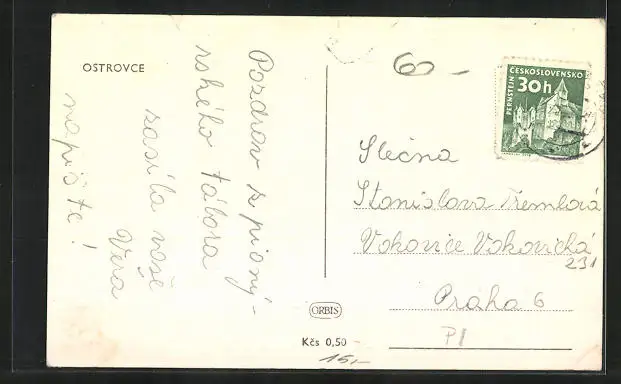 OSTROVCE
Pozdrav z pioný-
rského tábora
zasílá vaše
Věra
napište!
6 -
ČESKOSLOVENSKO
PERNŠTEJN
30h
Slečna
Stanislava Třemlová
Vokovice Vokovická
231
Praha 6
P1
ORBIS
Kčs 0,50
15,-